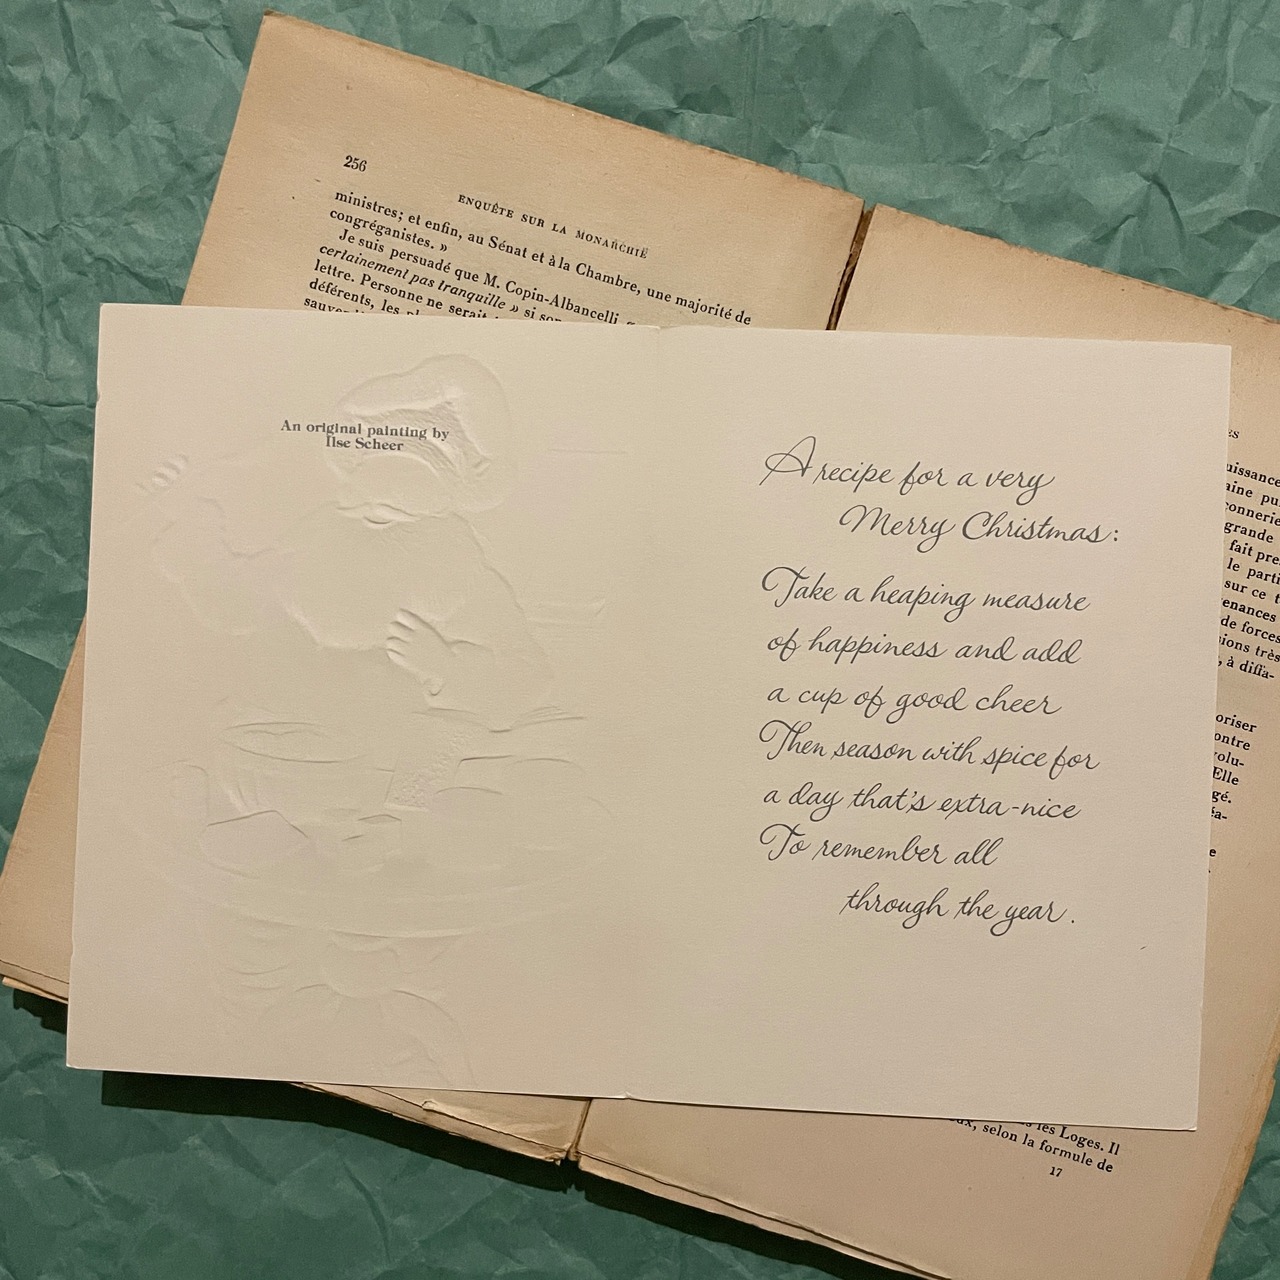 256
ENQUÊTE SUR LA MONARCHIE
ministres; et enfin, au Sénat et à la Chambre, une majorité de
congréganistes. »
Je suis persuadé que M. Copin-Albancelli
certainement pas tranquille » si
lettre. Personne ne serait
déférents, les
An original painting by
Ilse Scheer
A recipe for a very
Merry Christmas:
Take a heaping measure
of happiness and add
a cup of good cheer
Then season with spice for
a day that's extra-nice
To remember all
through the year.
grande
fait
le parti
sur ce
de forces
très
, à diffa-
Elle
les Loges. Il
selon la formule de
17